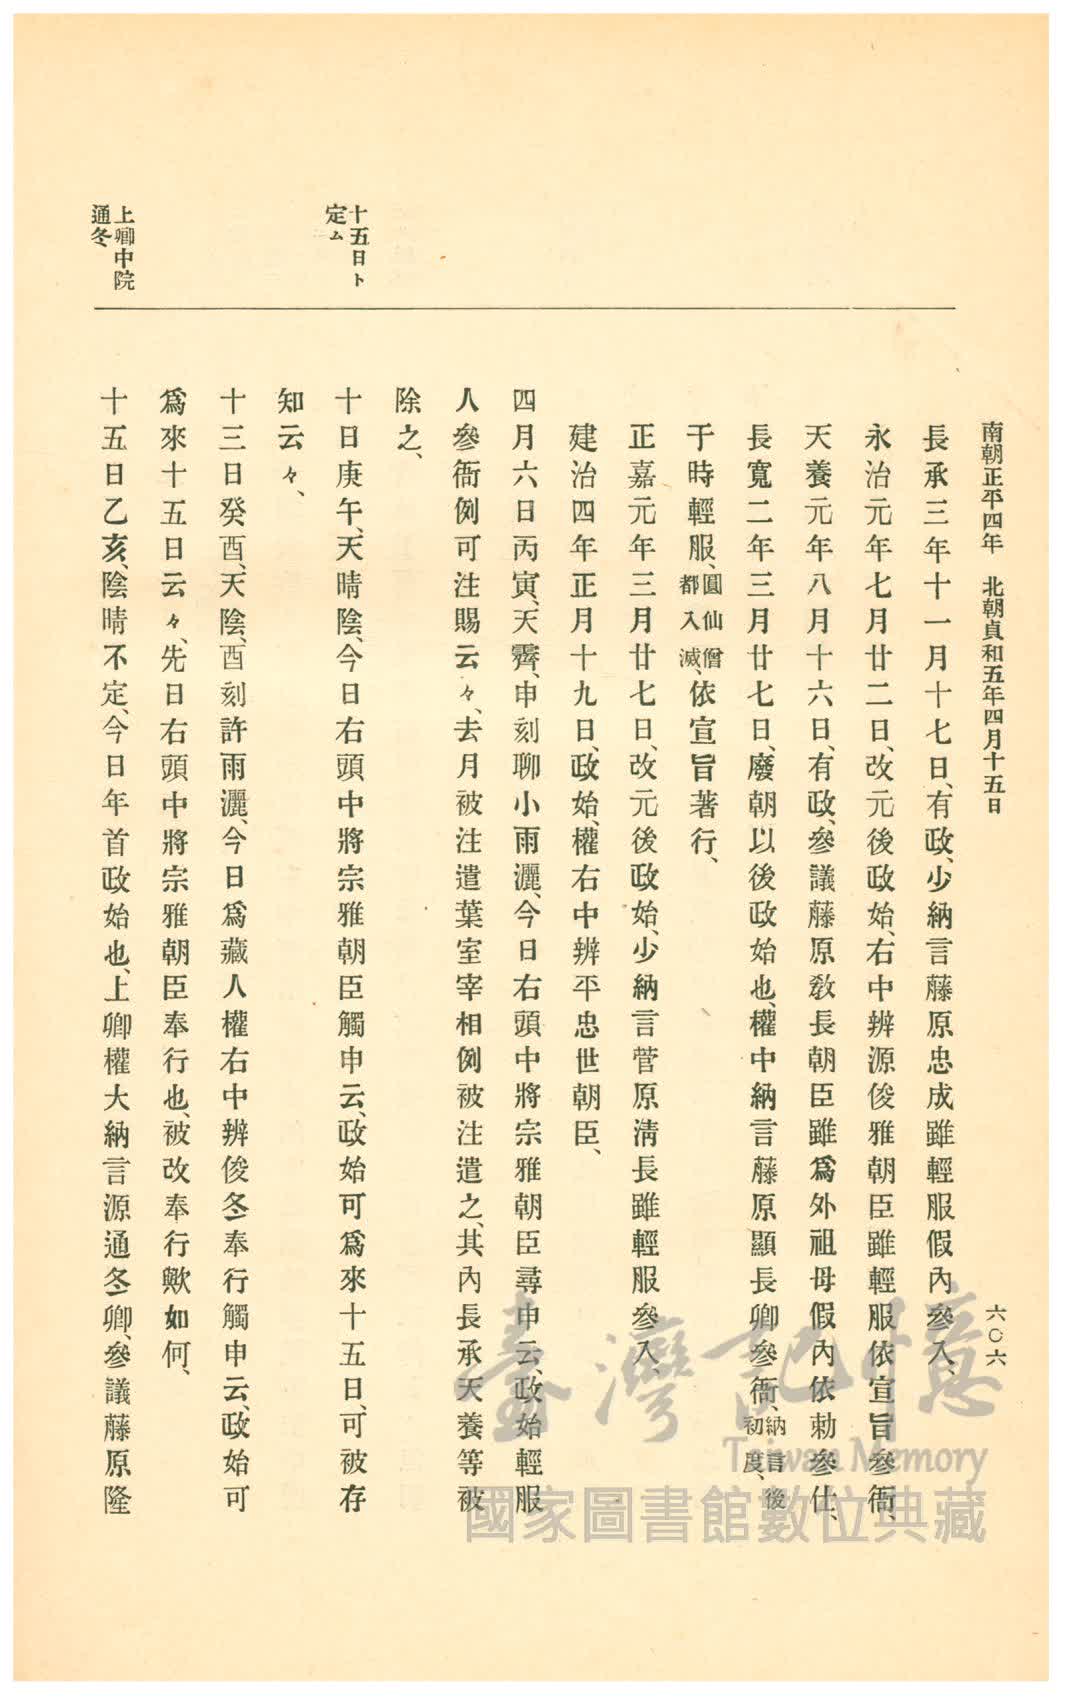 南朝正平四年　北朝貞和五年四月十五日
六〇六
長承三年十一月十七日、有政、少納言藤原忠成雖輕服假內參入、
永治元年七月廿二日、改元後政始、右中辨源俊雅朝臣雖輕服依宣旨參衙、
天養元年八月十六日、有政、參議藤原敎長朝臣雖爲外祖母假內依勅參仕、
長寬二年三月廿七日、廢朝以後政始也、權中納言藤原顯長卿參衙、納言後初度、
于時輕服、圓仙僧都入滅、依宣旨著行、
正嘉元年三月廿七日、改元後政始、少納言菅原淸長雖輕服參入、
建治四年正月十九日、政始、權右中辨平忠世朝臣、
四月六日丙寅、天霽、申刻聊小雨灑、今日右頭中將宗雅朝臣尋申云、政始輕服
人參衙例可注賜云々、去月被注遣葉室宰相例被注遣之、其內長承天養等被
除之、
十五日ト
定ム
十日庚午、天晴陰、今日右頭中將宗雅朝臣觸申云、政始可爲來十五日、可被存
知云々、
十三日癸酉、天陰、酉刻許雨灑、今日爲藏人權右中辨俊冬奉行觸申云、政始可
爲來十五日云々、先日右頭中將宗雅朝臣奉行也、被改奉行歟如何、
上卿中院
通冬
十五日乙亥、陰晴不定、今日年首政始也、上卿權大納言源通冬卿、參議藤原隆
臺灣記憶
Taiwan Memory
國家圖書館數位典藏